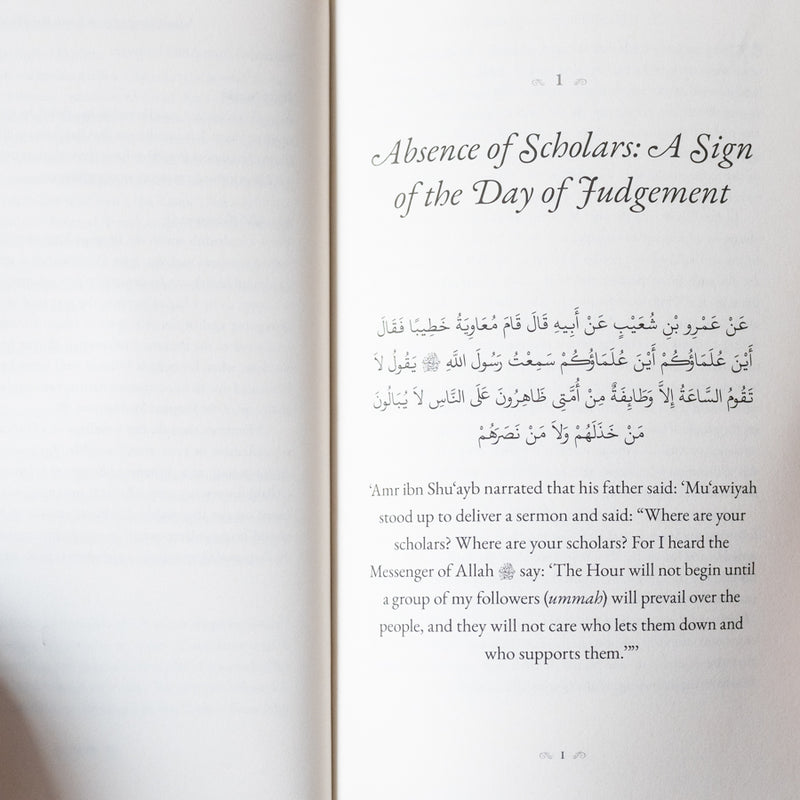 1
Absence of Scholars: A Sign
of the Day of Judgement
عَنْ عَمْرِو بْنِ شُعَيْبٍ عَنْ أَبِيهِ قَالَ قَامَ مُعَاوِيَةُ خَطِيبًا فَقَالَ
أَيْنَ عُلَمَاؤُكُمْ أَيْنَ عُلَمَاؤُكُمْ سَمِعْتُ رَسُولَ اللَّهِ ﷺ يَقُولُ لاَ
تَقُومُ السَّاعَةُ إِلاَّ وَطَايِفَةٌ مِنْ أُمَّتِي ظَاهِرُونَ عَلَى النَّاسِ لاَ يُبَالُونَ
مَنْ خَذَلَهُمْ وَلاَ مَنْ نَصَرَهُمْ
‘Amr ibn Shu‘ayb narrated that his father said: ‘Mu‘awiyah
stood up to deliver a sermon and said: “Where are your
scholars? Where are your scholars? For I heard the
Messenger of Allah ﷺ say: ‘The Hour will not begin until
a group of my followers (ummah) will prevail over the
people, and they will not care who lets them down and
who supports them.’”’
1